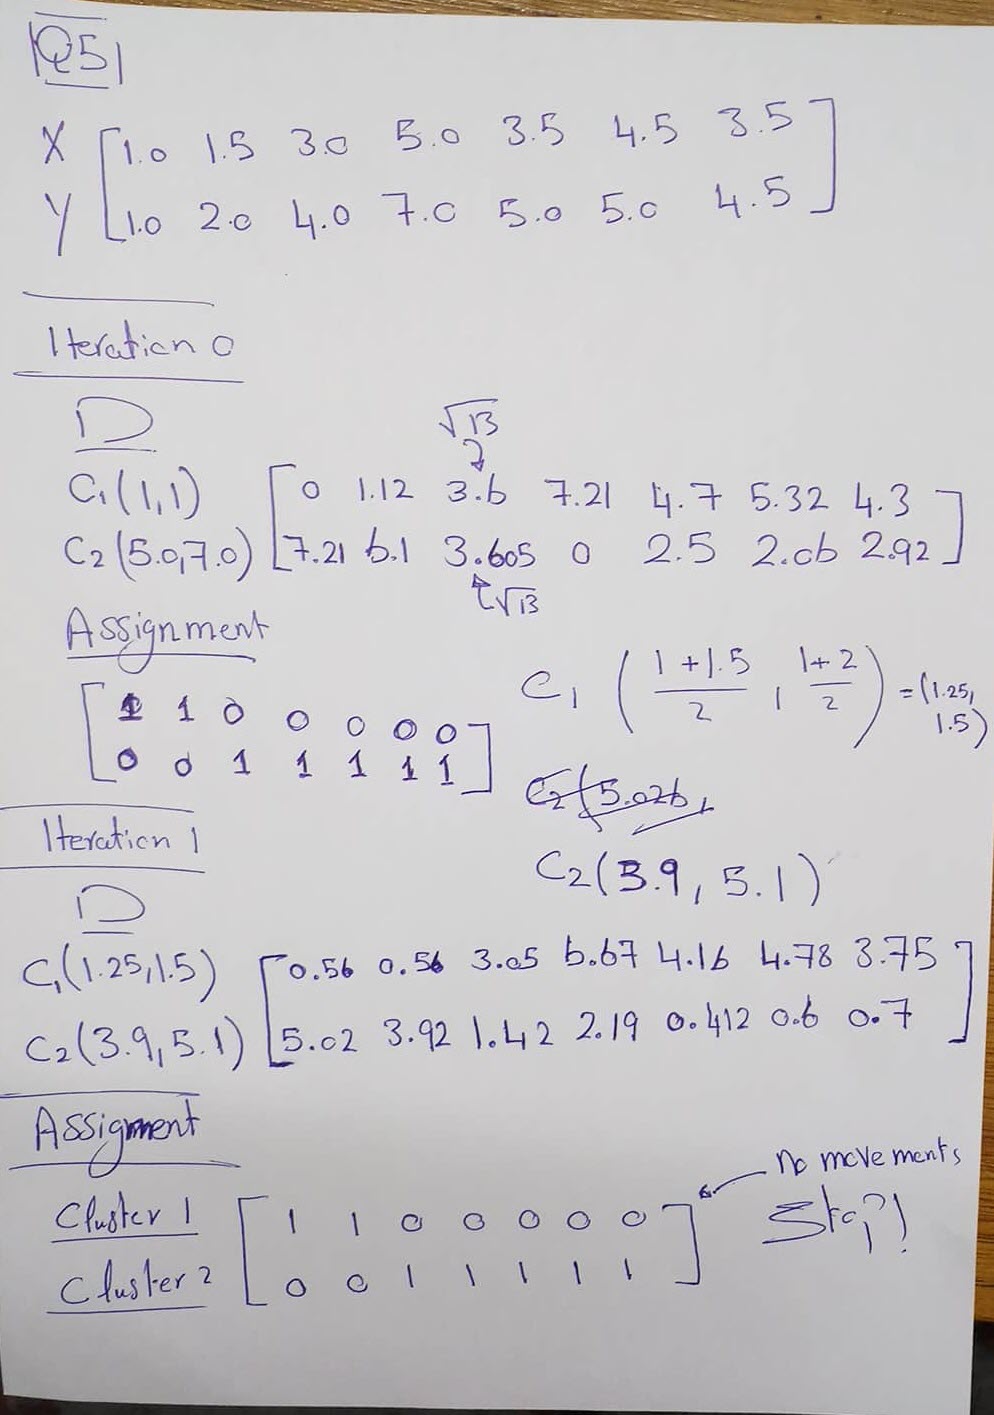 Q5
X [1.0 1.5 3.0 5.0 3.5 4.5 3.5]
Y [1.0 2.0 4.0 7.0 5.0 5.0 4.5]
Iteration 0
D
√13
C1(1,1) [0 1.12 3.6 7.21 4.7 5.32 4.3]
C2(5.0,7.0) [7.21 6.1 3.605 0 2.5 2.06 2.92]
√13
Assignment
[1 1 0 0 0 0 0]
[0 0 1 1 1 1 1]
C1 ( (1+1.5)/2 , (1+2)/2 ) = (1.25, 1.5)
C2(5.026,
C2(3.9, 5.1)
Iteration 1
D
C1(1.25,1.5) [0.56 0.56 3.05 6.67 4.16 4.78 3.75]
C2(3.9,5.1) [5.02 3.92 1.42 2.19 0.412 0.6 0.7]
Assigment
no movements
Cluster 1 [1 1 0 0 0 0 0]
Stop!
Cluster 2 [0 0 1 1 1 1 1]